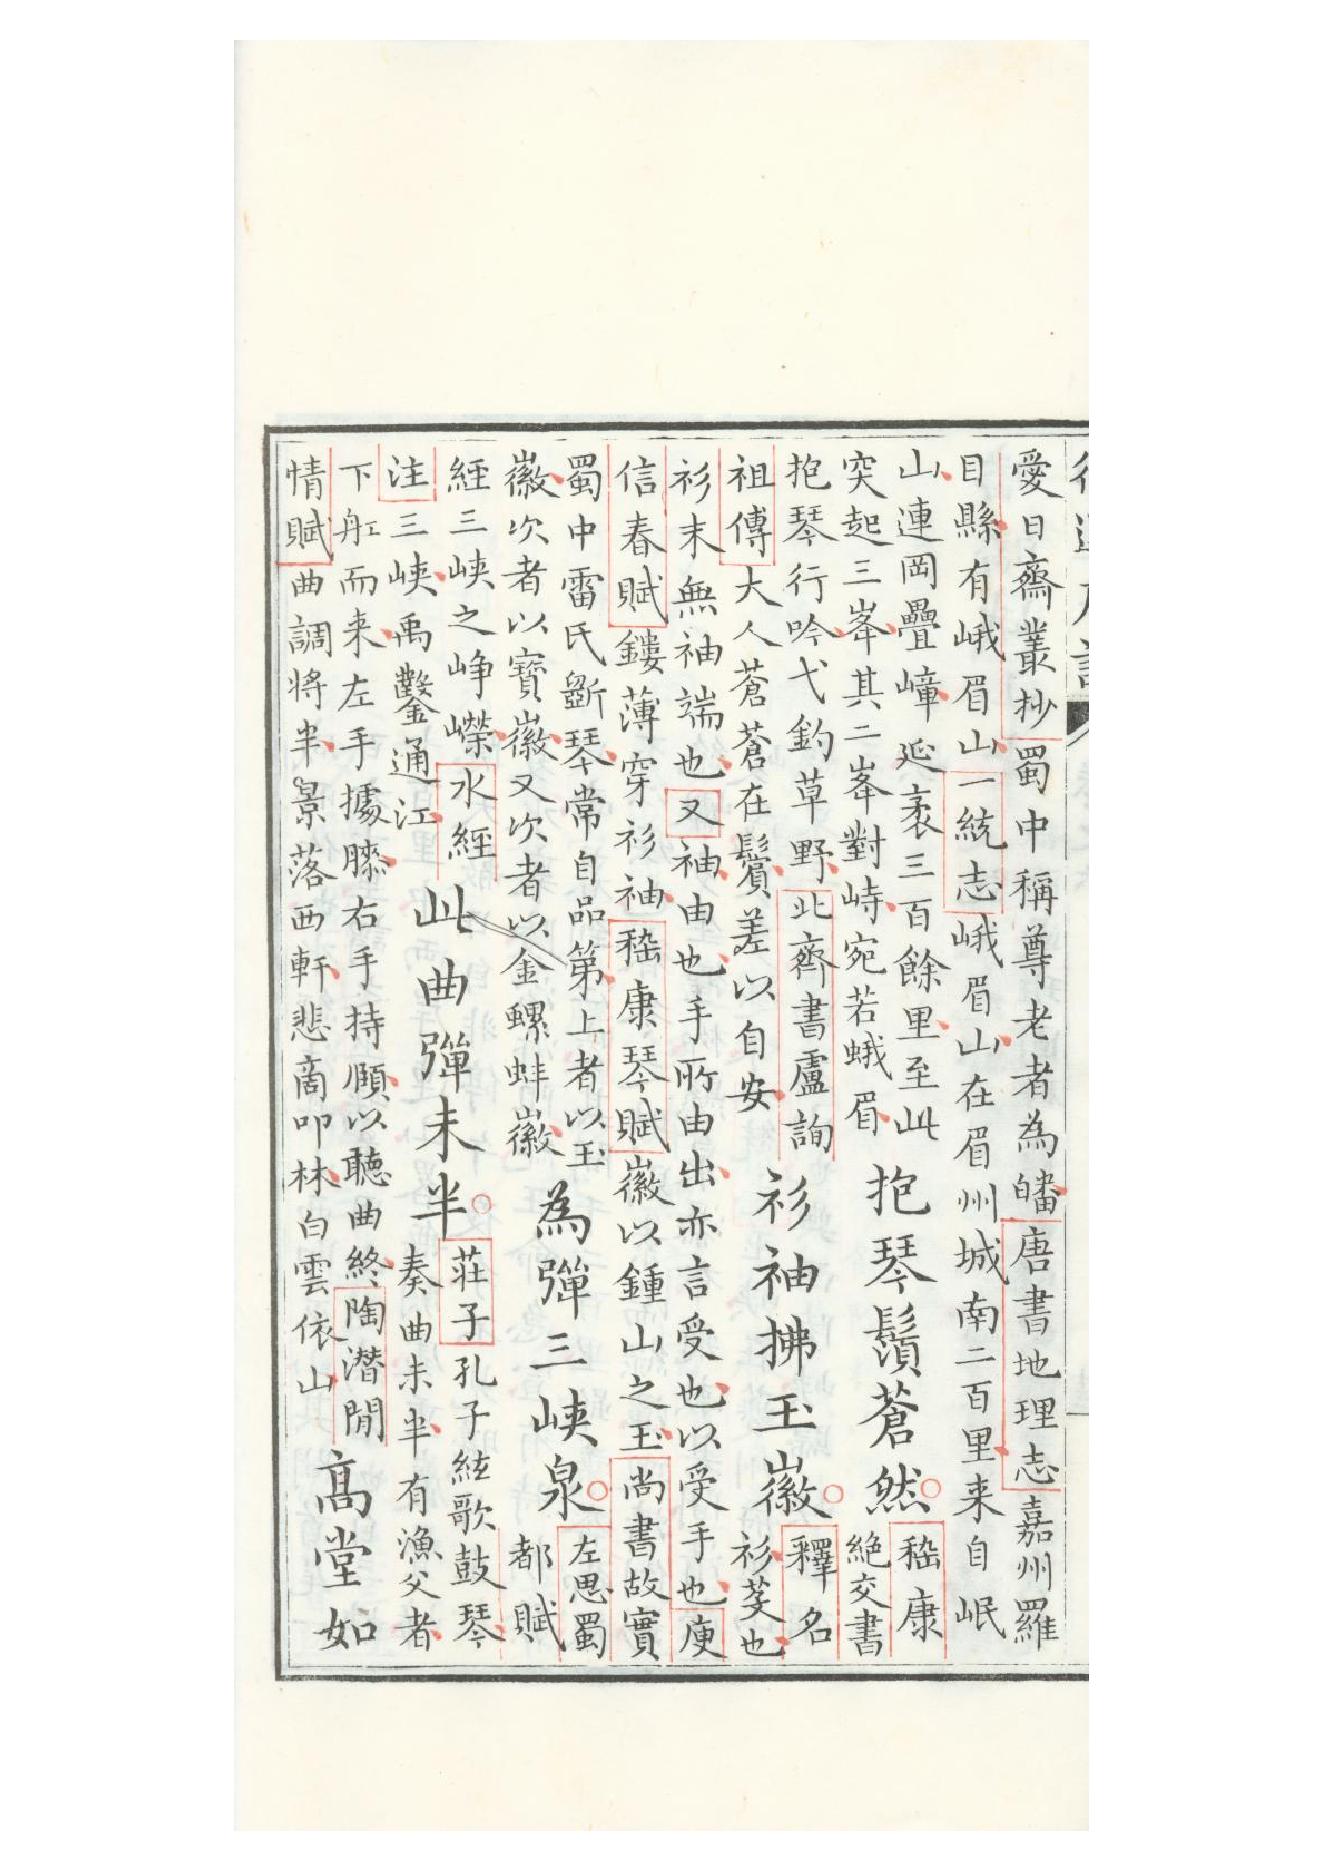 愛日齋叢抄蜀中稱尊老者為皤唐書地理志嘉州羅
目縣有峨眉山一統志峨眉山在眉州城南二百里来自岷
山連岡疊嶂延袤三百餘里至此
突起三峯其二峯對峙宛若蛾眉
抱琴鬚蒼然
嵇康
絕交書
抱琴行吟弋釣草野北齊書盧詢
祖傳大人蒼蒼在鬢差以自安
衫袖拂玉徽
釋名
衫芟也
衫末無袖端也又袖由也手所由出亦言受也以受手也庾
信春賦鏤薄穿衫袖嵇康琴賦徽以鍾山之玉尚書故實
蜀中雷氏斵琴常自品第上者以玉
徽次者以寶徽又次者以金螺蚌徽
為彈三峽泉
左思蜀
都賦
經三峽之崢嶸水經
注三峽禹鑿通江
此曲彈未半
莊子孔子絃歌鼓琴
奏曲未半有漁父者
下舡而来左手據膝右手持頤以聽曲終陶潛閒
情賦曲調將半景落西軒悲商叩林白雲依山
高堂如